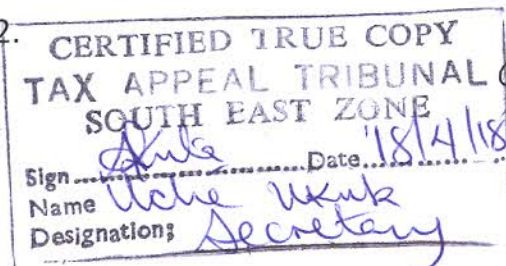 2.
CERTIFIED TRUE COPY
TAX APPEAL TRIBUNAL
SOUTH EAST ZONE
Sign.................Date..18/4/18
Name Uche
Designation: Secretary